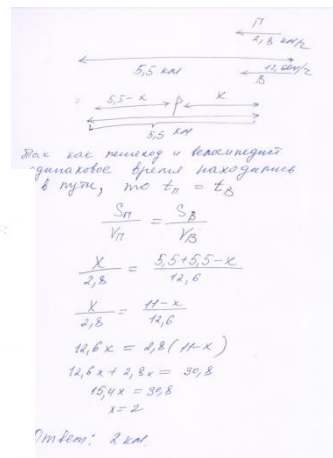 П
2,8 км/ч
5,5 км
12,6 км/ч
В
5,5 - x P x
5,5 км
Так как пешеход и велосипедист
одинаковое время находились
в пути, то tп = tв
Sп/Vп = Sв/Vв
x/2,8 = 5,5+5,5-x/12,6
x/2,8 = 11-x/12,6
12,6x = 2,8(11-x)
12,6x + 2,8x = 30,8
15,4x = 30,8
x = 2
Ответ: 2 км.